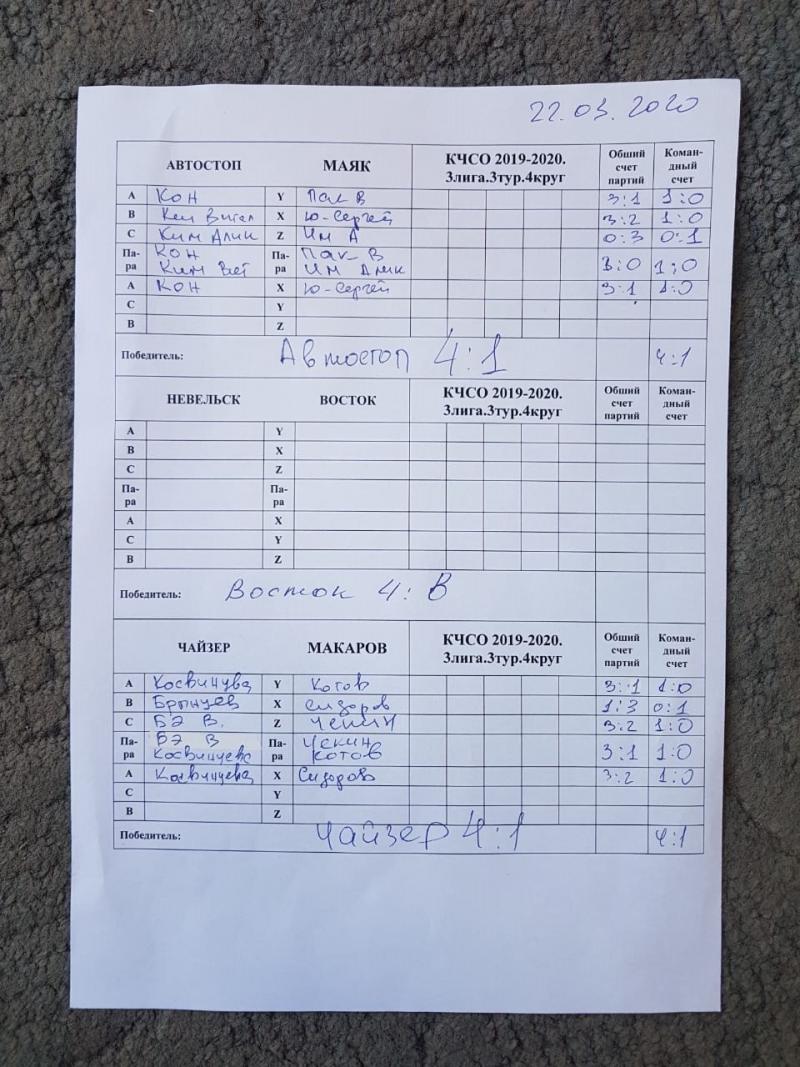 22.03.2020
АВТОСТОП МАЯК КЧСО 2019-2020. 3лига.3тур.4круг Общий счет партий Коман-дный счет
А Кон Y Пак В 3:1 1:0
В Ким Х Ю-Сергей 3:2 1:0
С Ким Алик Z Им А 0:3 0:1
Па-ра Кон Па-ра Пак В 3:0 1:0
Ким Вит Им Алик
А Кон Х Ю-Сергей 3:1 1:0
С Y
В Z
Победитель: Автостоп 4:1 4:1
НЕВЕЛЬСК ВОСТОК КЧСО 2019-2020. 3лига.3тур.4круг Общий счет партий Коман-дный счет
А Y
В Х
С Z
Па-ра Па-ра
А Х
С Y
В Z
Победитель: Восток 4: В
ЧАЙЗЕР МАКАРОВ КЧСО 2019-2020. 3лига.3тур.4круг Общий счет партий Коман-дный счет
А Косвинцева Y Котов 3:1 1:0
В Брынцев Х Сидоров 1:3 0:1
С БЭ В. Z Чекин 3:2 1:0
Па-ра БЭ В Па-ра Чекин 3:1 1:0
Косвинцева Котов
А Косвинцева Х Сидоров 3:2 1:0
С Y
В Z
Победитель: Чайзер 4:1 4:1